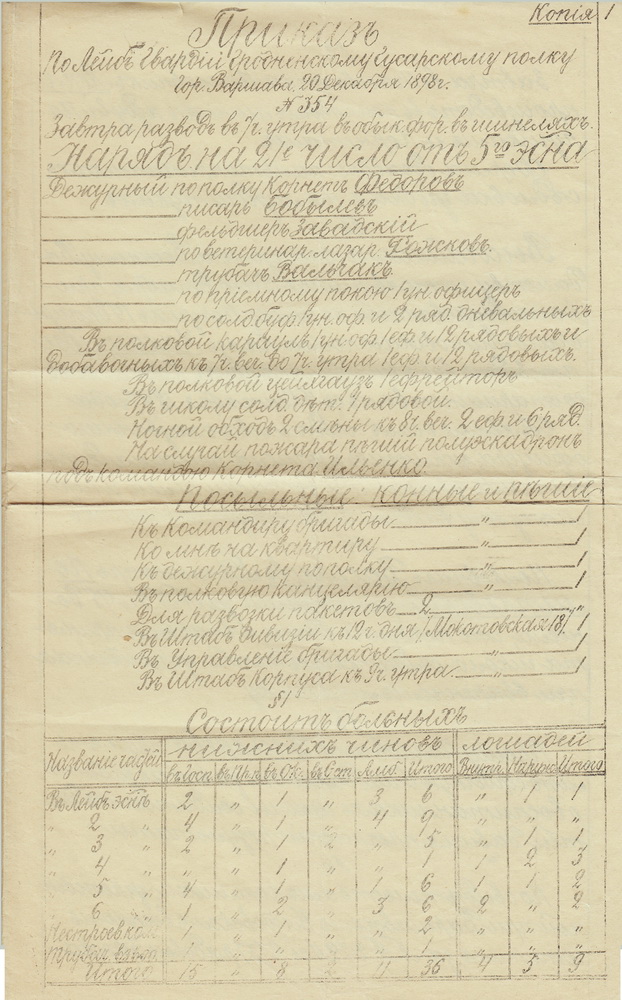 Копія 1
Приказъ
По Лейбъ Гвардіи Гродненскому Гусарскому полку
Гор. Варшава, 20 Декабря 1898 г.
№ 354
Завтра разводъ въ 7 ч. утра въ обык. фор. въ шинеляхъ.
Нарядъ на 21е число отъ 5го эс-на
Дежурный по полку Корнетъ Федоровъ
писарь Бобылевъ
фельдшеръ Завадскій
по ветеринар. лазар. Рожковъ.
трубачъ Вальчакъ
по пріемному покою 1 ун. офицеръ
по солд. буф. 1 ун. оф. и 2 ряд. дневальныхъ
Въ полковой караулъ 1 ун. оф. 1 еф. и 12 рядовыхъ и
добавочныхъ къ 7 ч. веч. до 7 ч. утра 1 еф. и 12 рядовыхъ.
Въ полковой цейхгаузъ 1 ефрейторъ
Въ школу солд. дѣт. 1 рядовой.
Ночной обходъ 2 смѣны къ 8 ч. веч. 2 еф. и 6 ряд.
На случай пожара пѣшій полуэскадронъ
подъ командою Корнета Ильенко.
Посыльные: конные и пѣшіе
Къ Командиру бригады " 1
Ко мнѣ на квартиру " 1
Къ дежурному по полку " 1
Въ полковую канцелярію " 1
Для развозки пакетовъ 2 "
Въ Штабъ Дивизіи къ 12 ч. дня (Мокотовская 18). 1
Въ Управленіе бригады " 1
Въ Штабъ Корпуса къ 9 ч. утра. " 1
§ 1
Состоитъ больныхъ
Названіе частей нижнихъ чиновъ лошадей
въ Госп. въ Ок. Амб. Итого Внутр. Наруж. Итого
Въ Лейбъ эс-нѣ 2 " 1 " 3 6 " 1 1
" 2 " 4 " 1 " 4 9 " " "
" 3 " 2 " 1 2 " 5 " 1 1
" 4 " " " 1 " " 1 1 2 3
" 5 " 4 " 1 " 1 6 1 1 2
" 6 " 1 " 2 " 3 6 2 " 2
Нестроевой 1 " 1 " " 2 " " "
1 " " " " 1 " " "
Итого 15 " 8 2 11 36 4 5 9